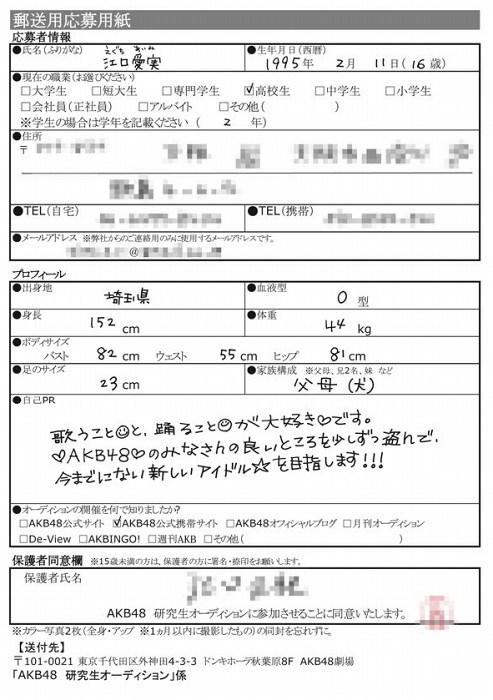 郵送用応募用紙
応募者情報
●氏名(ふりがな) えぐち あいみ 江口愛実 ●生年月日(西暦) 1995年 2月 11日(16歳)
●現在の職業(お選びください)
□大学生 □短大生 □専門学生 ☑高校生 □中学生 □小学生
□会社員(正社員) □アルバイト □その他( )
※学生の場合は学年を記載ください( 2 年)
●住所
〒
●TEL(自宅) ●TEL(携帯)
●メールアドレス ※弊社からのご連絡用のみに使用するメールアドレスです。
@
プロフィール
●出身地 埼玉県 ●血液型 O 型
●身長 152 cm ●体重 44 kg
●ボディサイズ
バスト 82 cm ウェスト 55 cm ヒップ 81 cm
●足のサイズ 23 cm ●家族構成 ※父母、兄2名、妹 など 父母(犬)
●自己PR
歌うこと☺と、踊ること☺が大好き♡です。
♡AKB48♡のみなさんの良いところを少しずつ盗んで、
今までにない新しいアイドル☆を目指します!!!
●オーディションの開催を何で知りましたか?
□AKB48公式サイト ☑AKB48公式携帯サイト □AKB48オフィシャルブログ □月刊オーディション
□De-View □AKBINGO! □週刊AKB □その他( )
保護者同意欄 ※15歳未満の方は、保護者の方に署名・捺印をお願いします。
保護者氏名
AKB48 研究生オーディションに参加させることに同意いたします。
※カラー写真2枚(全身・アップ ※1ヵ月以内に撮影したもの)の同封を忘れずに。
【送付先】
〒101-0021 東京千代田区外神田4-3-3 ドンキホーテ秋葉原8F AKB48劇場
「AKB48 研究生オーディション」係